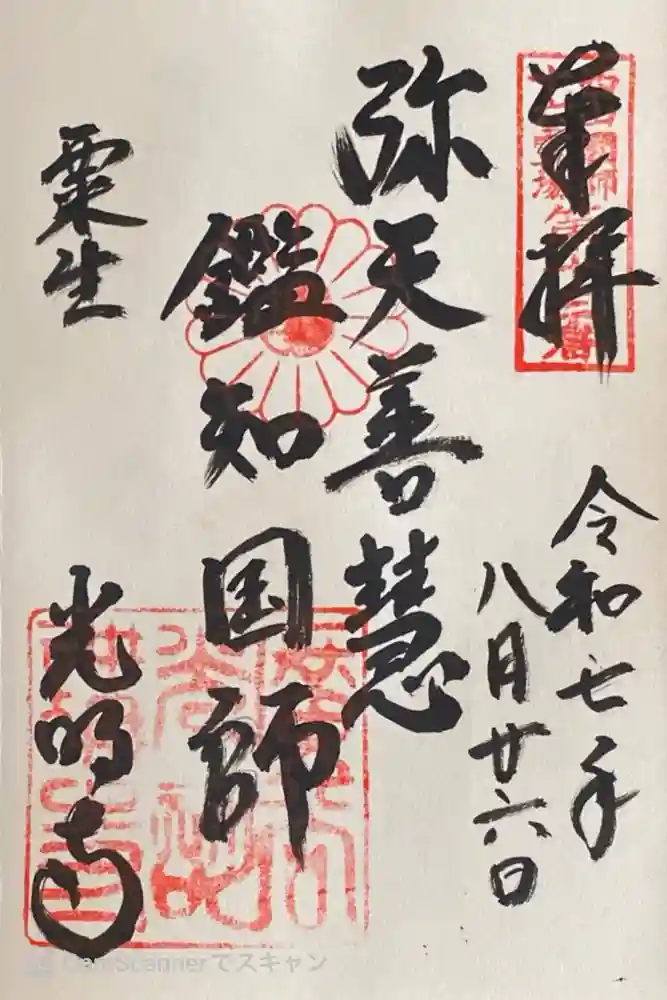 奉拝
令和七年
八月廿六日
弥天善慧
鑑知国師
粟生
光明寺
CamScannerでスキャン